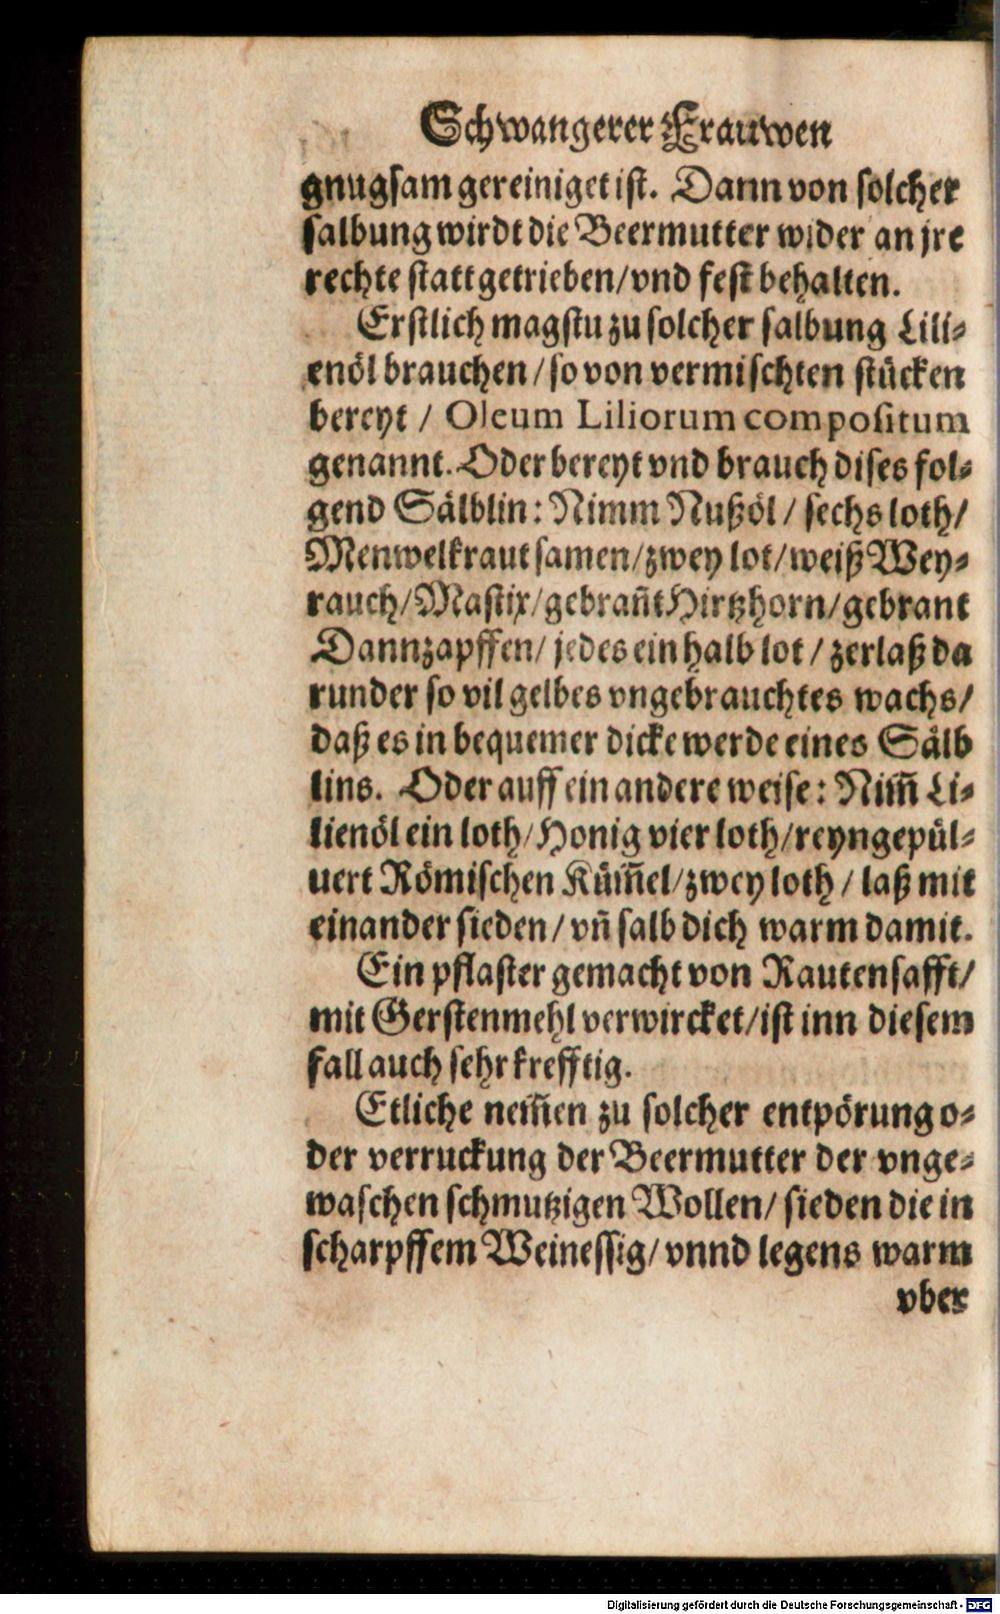 Schwangerer Frauwen
gnugsam gereiniget ist. Dann von solcher
salbung wirdt die Beermutter wider an jre
rechte statt getrieben/ vnd fest behalten.
Erstlich magstu zu solcher salbung Lili⸗
enöl brauchen/ so von vermischten stücken
bereyt / Oleum Liliorum compositum
genannt. Oder bereyt vnd brauch dises fol⸗
gend Sälblin: Nimm Nußöl/ sechs loth/
Menwelkraut samen/ zwey lot/ weiß Wey⸗
rauch/ Mastix/ gebrañt Hirtzhorn/ gebrant
Dannzapffen/ jedes ein halb lot/ zerlaß da
runder so vil gelbes vngebrauchtes wachs/
daß es in bequemer dicke werde eines Sälb
lins. Oder auff ein andere weise: Nim̃ Li⸗
lienöl ein loth/ Honig vier loth/ reyngepül⸗
uert Römischen Küm̃el/ zwey loth/ laß mit
einander sieden/ vñ salb dich warm damit.
Ein pflaster gemacht von Rautensafft/
mit Gerstenmehl verwircket/ ist inn diesem
fall auch sehr krefftig.
Etliche nem̃en zu solcher entpörung o⸗
der verruckung der Beermutter der vnge⸗
waschen schmutzigen Wollen/ sieden die in
scharpffem Weinessig/ vnnd legens warm
vber
Digitalisierung gefördert durch die Deutsche Forschungsgemeinschaft - DFG